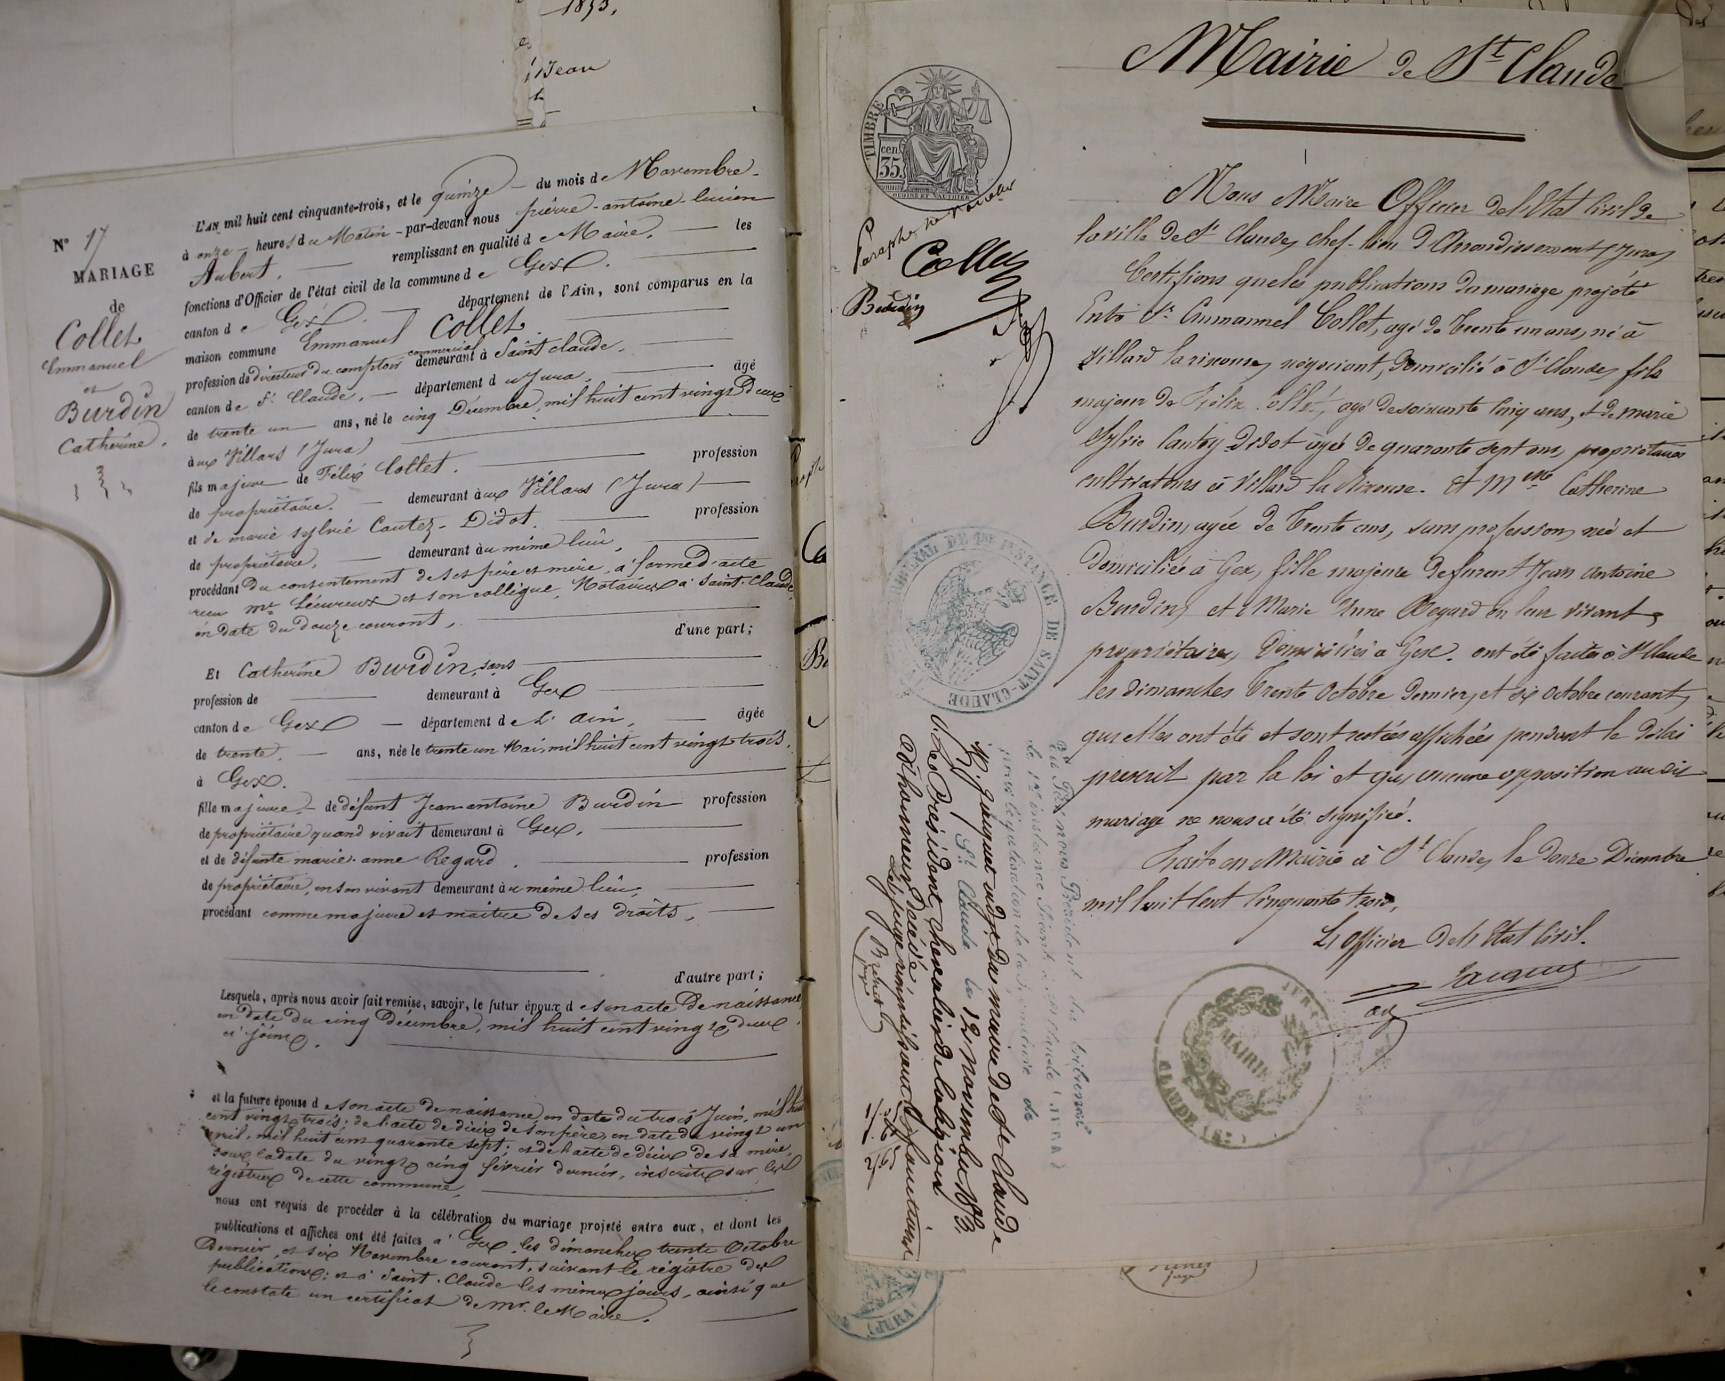 1853,
Jean
N° 17
MARIAGE
de
Collet
Emmanuel
et
Burdin
Catherine.
L'AN mil huit cent cinquante-trois, et le quinze du mois de Novembre
à onze heures du Matin par-devant nous pierre-antoine-lucien
Aubert, remplissant en qualité de Maire, les
fonctions d'Officier de l'état civil de la commune de Gex.
canton de Gex département de l'Ain, sont comparus en la
maison commune Emmanuel Collet
profession de directeur du comptoir commercial demeurant à Saint claude,
canton de St Claude, département du Jura, âgé
de trente un ans, né le cinq Décembre mil huit cent vingt deux
à aux Villars (Jura)
fils majeur de Félix Collet. profession
de propriétaire. demeurant à aux Villars (Jura)
et de marie sylvie Cantez-Didot. profession
de propriétaire, demeurant à au même lieu,
procédant du consentement de ses père et mère, à forme d'acte
reçu me Lécureux et son collègue, Notaires à Saint-Claude
en date du douze courant,
d'une part;
Et Catherine Burdin, sans
profession de demeurant à Gex
canton de Gex département de L'ain, âgée
de trente. ans, née le trente un Mai, mil huit cent vingt trois,
à Gex.
fille majeure de défunt Jean-antoine Burdin profession
de propriétaire quand vivait demeurant à Gex,
et de défunte marie-anne Regard. profession
de propriétaire, en son vivant demeurant à u même lieu;
procédant comme majeure et maitre de ses droits,
d'autre part;
Lesquels, après nous avoir fait remise, savoir, le futur époux de son acte de naissance
en date du cinq Décembre, mil huit cent vingt deux,
ci joint.
et la future épouse de son acte de naissance en date du trois Juin, mil huit
cent vingt trois; de l'acte de décès de son père, en date du vingt un
avril, mil huit cent quarante sept; et de l'acte de décès de sa mère,
sous la date du vingt cinq février dernier, inscrits sur les
régistres de cette commune,
nous ont requis de procéder à la célébration du mariage projeté entre eux, et dont les
publications et affiches ont été faites à Gex les dimanches trente Octobre
Dernier, et six Novembre courant, suivant le régistre des
publications; et à Saint-Claude les mêmes jours, ainsi que
le constate un certificat de Mr. le Maire.
Mairie de St Claude
TIMBRE
cen.
35
Paraphé ne varietur
Collet
Burdin
Nous Maire Officier de l'Etat Civil de
la ville de St Claude, chef-lieu d'Arrondissement (Jura)
Certifions que les publications du mariage projeté
Entre Sr. Emmanuel Collet, agé de trente un ans, né à
Villard la rixouse, négociant, domicilié à St Claude, fils
majeur de Félix Collet, agé de soixante cinq ans, et de marie
Sylvie Cantez-Didot agée de quarante sept ans, propriétaires
cultivateurs à Villard la Rixouse. Et Mlle Catherine
Burdin, agée de trente ans, sans profession, née et
domiciliée à Gex, fille majeure de furent Jean Antoine
Burdin, et Marie Anne Regard en leur vivant,
propriétaires, domiciliés à Gex. ont été faites à St Claude
les dimanches trente Octobre dernier, et six octobre courant,
qu'elles ont été et sont restées affichées pendant le délai
prescrit par la loi et qu'aucune opposition audit
mariage ne nous a été signifiée.
Fait en Mairie à St Claude, le douze Décembre
mil huit Cent Cinquante trois,
L'officier de l'Etat Civil.
Jacquet
adj
TRIBUNAL DE 1re INSTANCE DE SAINT-CLAUDE
Vu Par nous Président du tribunal
de 1re instance séant à St Claude (JURA)
pour légalisation de la signature de
Mr Jacquet adjt. du maire de St Claude
St Claude le 12 novembre 1853,
P. le Président, chevalier de la légion
d'honneur, décédé
Le juge remplissant les fonctions
Brunet
juge
MAIRIE
JURA
CLAUDE
juge
(JURA)